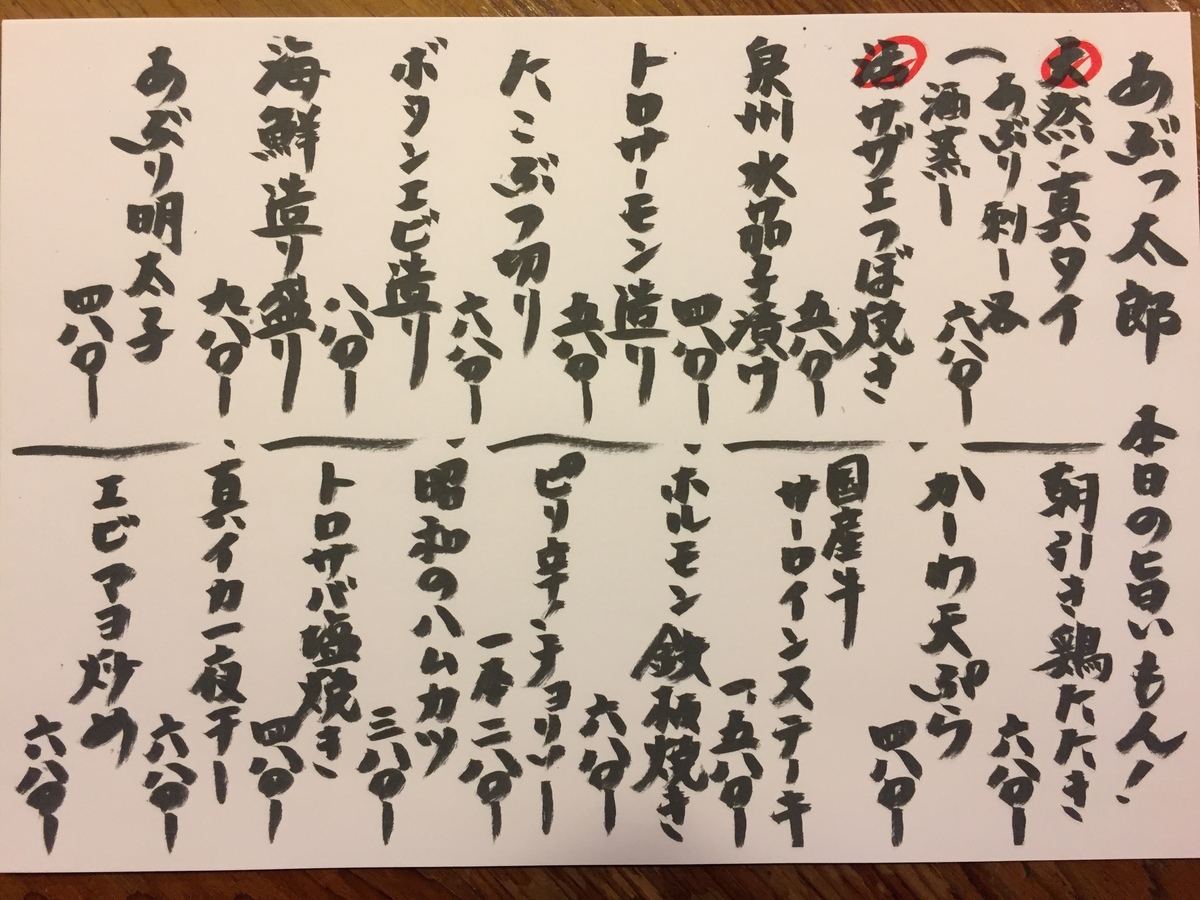 あぶっ太郎 本日の旨いもん!
天然真タイ
あぶり刺し各
酒蒸し
六八〇ー
活サザエつぼ焼き
五八〇ー
泉州水茄子漬け
四八〇ー
トロサーモン造り
五八〇ー
たこぶつ切り
六八〇ー
ボタンエビ造り
八八〇ー
海鮮造り盛り
九八〇ー
あぶり明太子
四八〇ー
朝引き鶏たたき
六八〇ー
かーわ天ぷら
四八〇ー
国産牛
サーロインステーキ
一、五八〇ー
ホルモン鉄板焼き
六八〇ー
ピリ辛チョリソー
一本二八〇ー
昭和のハムカツ
三八〇ー
トロサバ塩焼き
四八〇ー
真イカ一夜干し
六八〇ー
エビマヨ炒め
六八〇ー